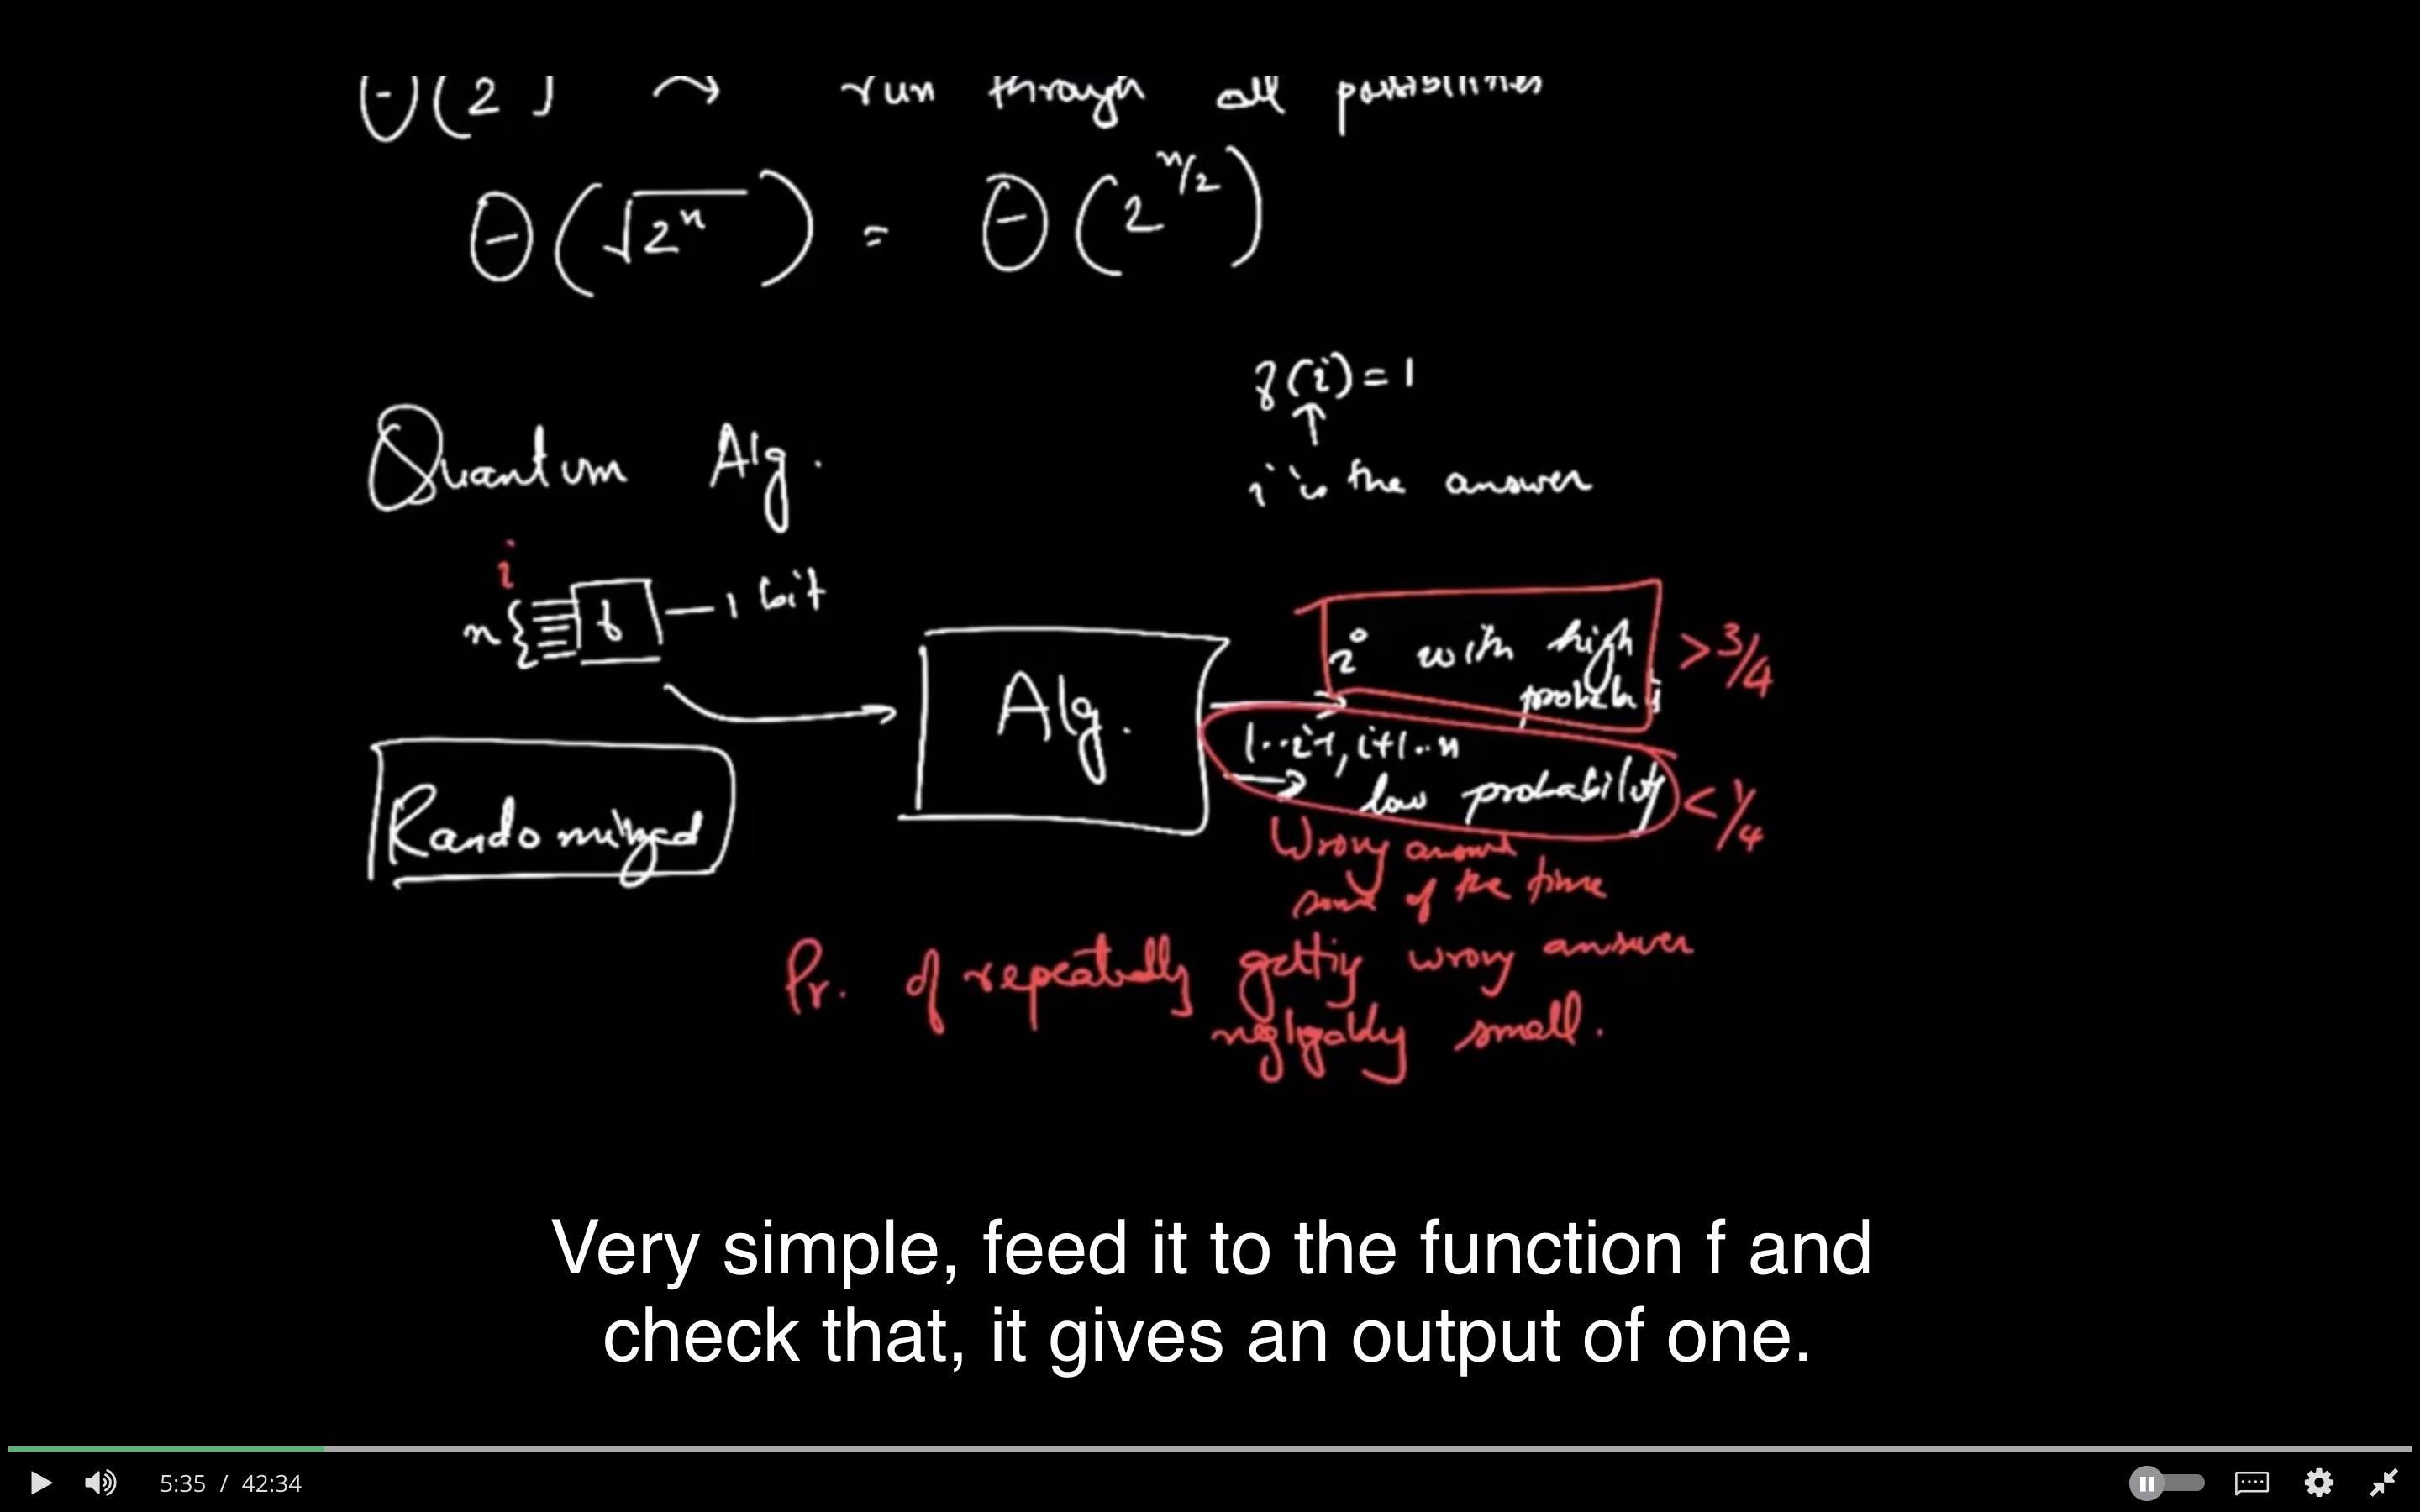 Θ(2 ) → run through all possibilities
Θ(√2ⁿ) = Θ(2^(n/2))
f(i) = 1
↑
i is the answer
Quantum Alg.
i
n { f — 1 bit
Alg.
i with high
probabi
> 3/4
1..i-1, i+1..n
low probability
< 1/4
Randomized
Wrong answer
some of the time
Pr. of repeatedly getting wrong answer
negligably small.
Very simple, feed it to the function f and
check that, it gives an output of one.
5:35 / 42:34